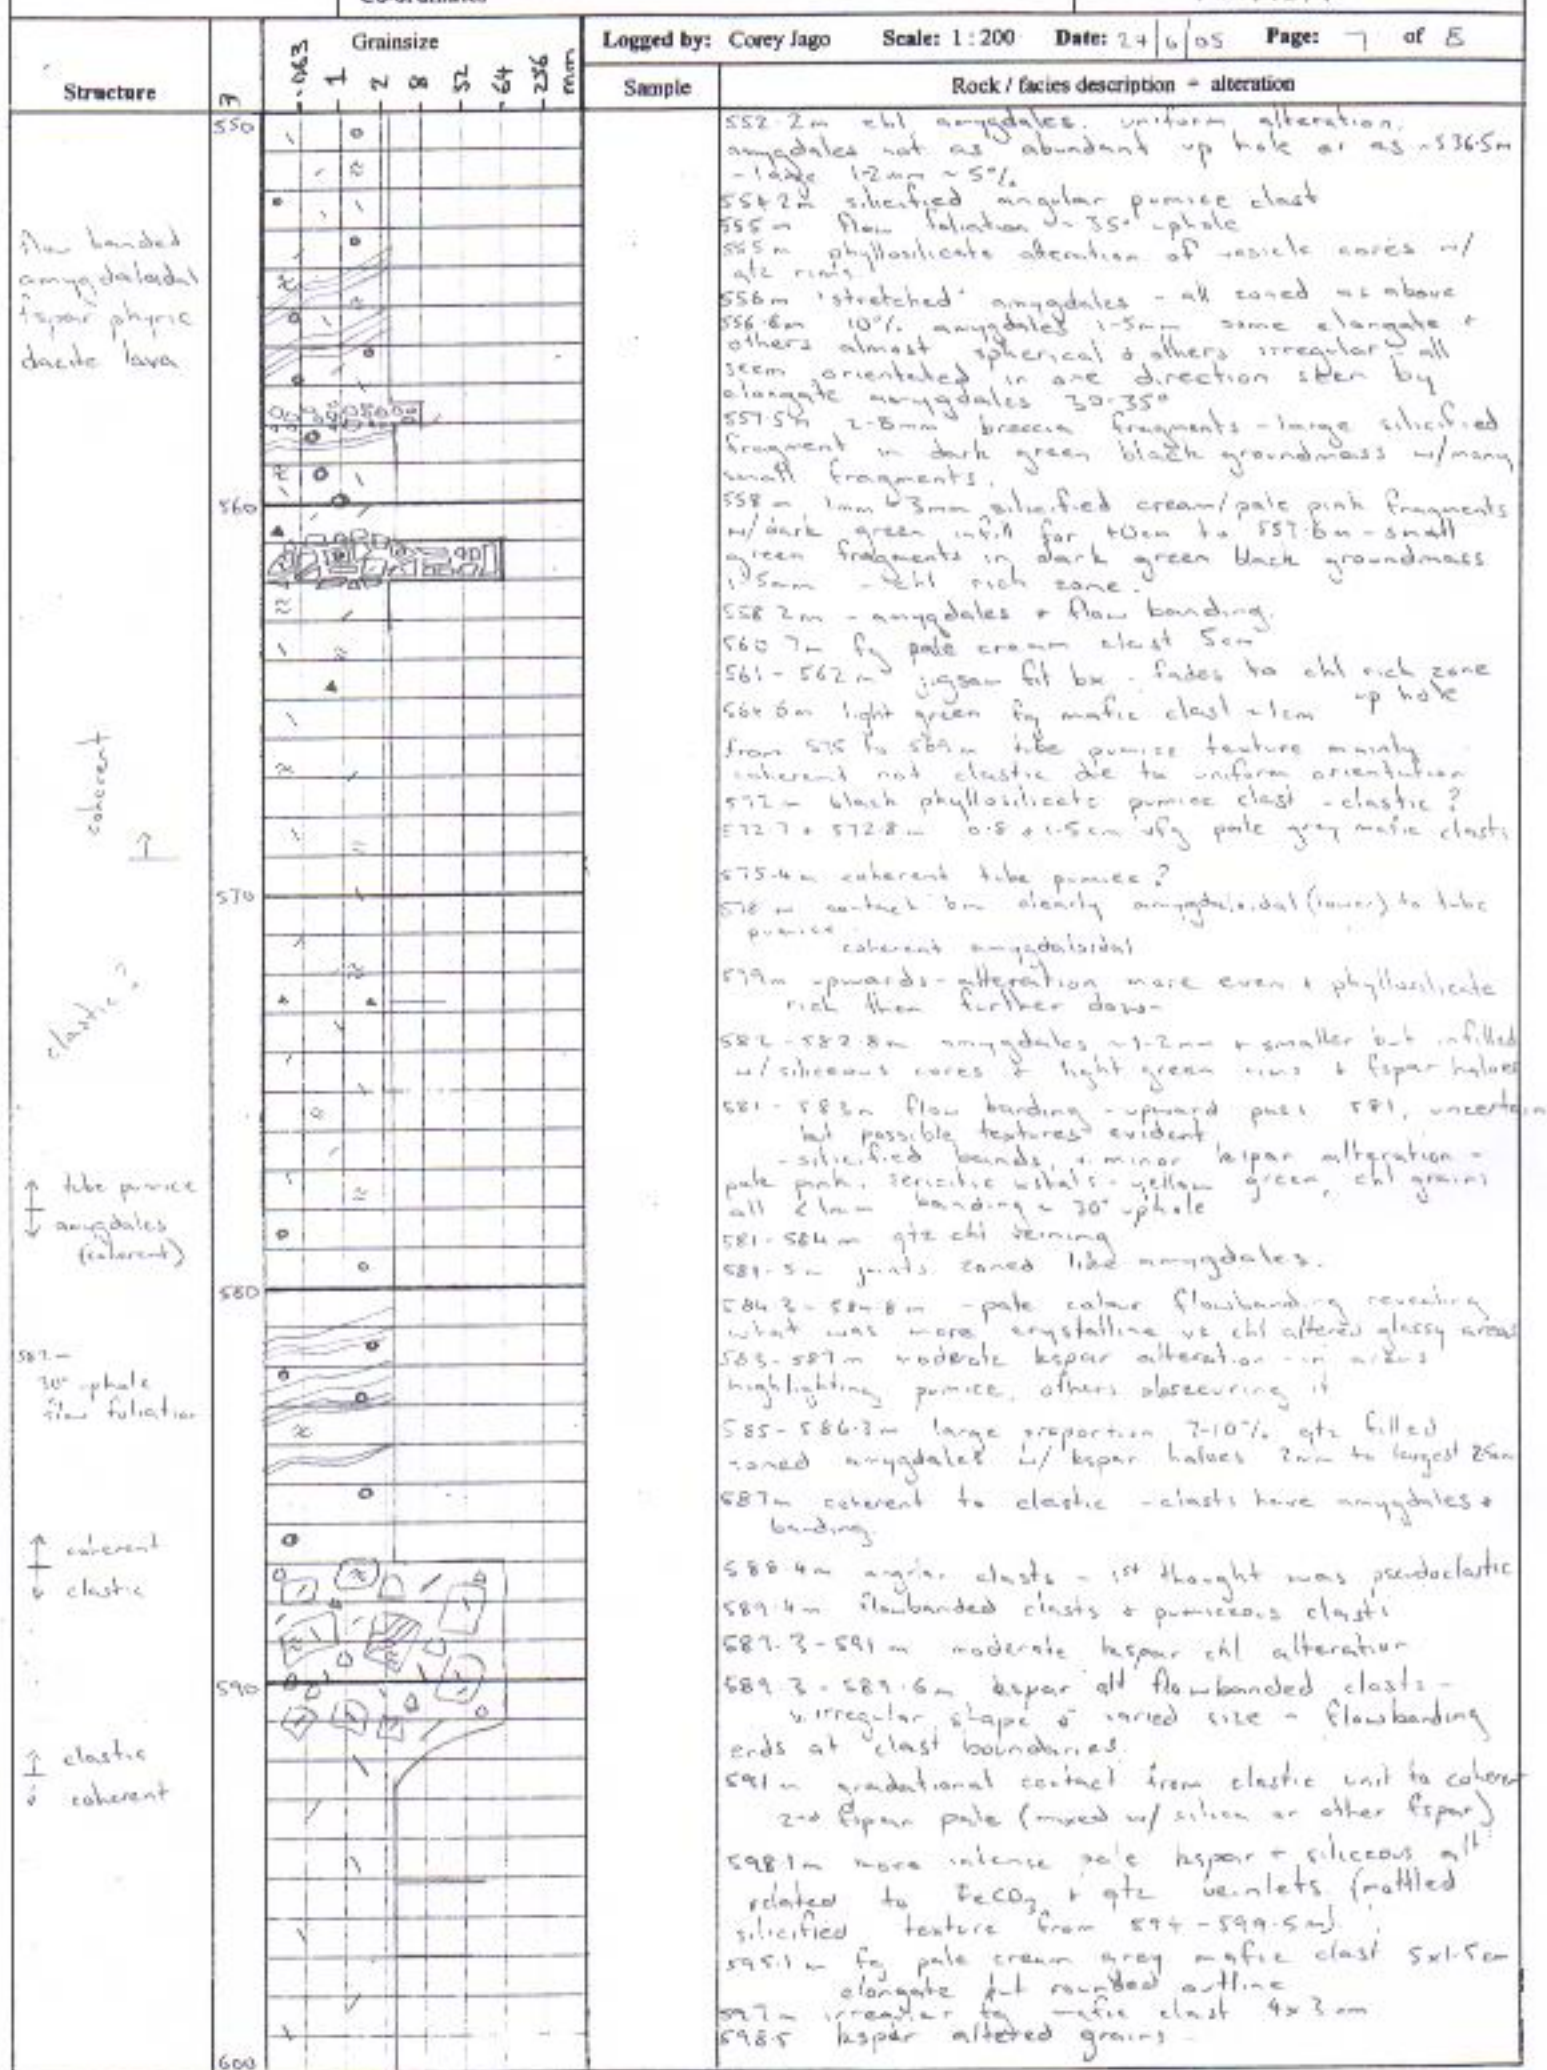 Co-ordinates
Grainsize
Logged by: Corey Jago Scale: 1:200 Date: 24/6/05 Page: 7 of 8
Structure
m
.063 1 2 8 32 64 256 mm
Sample
Rock / facies description + alteration
550
560
570
580
590
600
flow banded
amygdaloidal
fspar phyric
dacite lava
coherent
↑
clastic?
↑ tube pumice
↓ amygdales
(coherent)
582m
30° uphole
flow foliation
↑ coherent
↓ clastic
↑ clastic
↓ coherent
552.2m chl amygdales. uniform alteration.
amygdales not as abundant up hole or as ~536.5m
- large 1-2mm ~5%
554.2m silicified angular pumice clast
555m flow foliation ~ 35° uphole
555m phyllosilicate alteration of vesicle cores w/
qtz rims
556m 'stretched' amygdales - all zoned as above
556.6m 10% amygdales 1-5mm some elongate +
others almost spherical & others irregular - all
seem orientated in one direction seen by
elongate amygdales 30-35°
557.5m 2-8mm breccia fragments - large silicified
fragment in dark green black groundmass w/many
small fragments.
558m 1mm 3mm silicified cream/pale pink fragments
w/dark green infill for 40cm to 557.6m - small
green fragments in dark green black groundmass
- chl rich zone.
558.2m - amygdales + flow banding.
560.7m fg pale cream clast 5cm
561-562m jigsaw fit bx - fades to chl rich zone
up hole
564.6m light green fg mafic clast ~1cm
from 575 to 569m tube pumice texture mainly
coherent not clastic due to uniform orientation
572m black phyllosilicate pumice clast - clastic?
572.7 + 572.8m 0.8 + 1.5cm vfg pale grey mafic clasts
575.4m coherent tube pumice?
578m contact bm clearly amygdaloidal (lower) to tube
pumice
coherent amygdaloidal
579m upwards - alteration more even + phyllosilicate
rich then further down
582-582.8m amygdales ~1-2mm + smaller but infilled
w/siliceous cores + light green rims + fspar haloes
581-583m flow banding - upward past 581, uncertain
but possible textures evident
- silicified bands, + minor kspar alteration -
pale pink, sericitic - yellow green, chl grains
all <1mm banding ~ 30° uphole
581-584m qtz chl veining
581.5m joints zoned like amygdales.
584.3-584.8m - pale colour flowbanding revealing
what was more crystalline vs chl altered glassy areas
583-587m moderate kspar alteration - in areas
highlighting pumice, others obscuring it
585-586.3m large proportion 7-10% qtz filled
zoned amygdales w/ kspar haloes 2mm to largest
587m coherent to clastic - clasts have amygdales +
banding.
588.4m clasts - 1st thought was pseudoclastic
589.4m flowbanded clasts + pumiceous clasts
587.3-591m moderate kspar chl alteration
589.3-589.6m kspar alt flowbanded clasts -
v. irregular shape & varied size - flowbanding
ends at clast boundaries.
591m gradational contact from clastic unit to coherent
2nd fspar pale (mixed w/ silica or other fspar)
598.1m more intense pale kspar + siliceous alt
related to FeCO3 + qtz veinlets (mottled
silicified texture from 594-599.5m)
595.1m fg pale cream grey mafic clast 5x1.5cm
elongate but rounded outline
597m irregular fg mafic clast 4x3cm
598.5 kspar altered grains